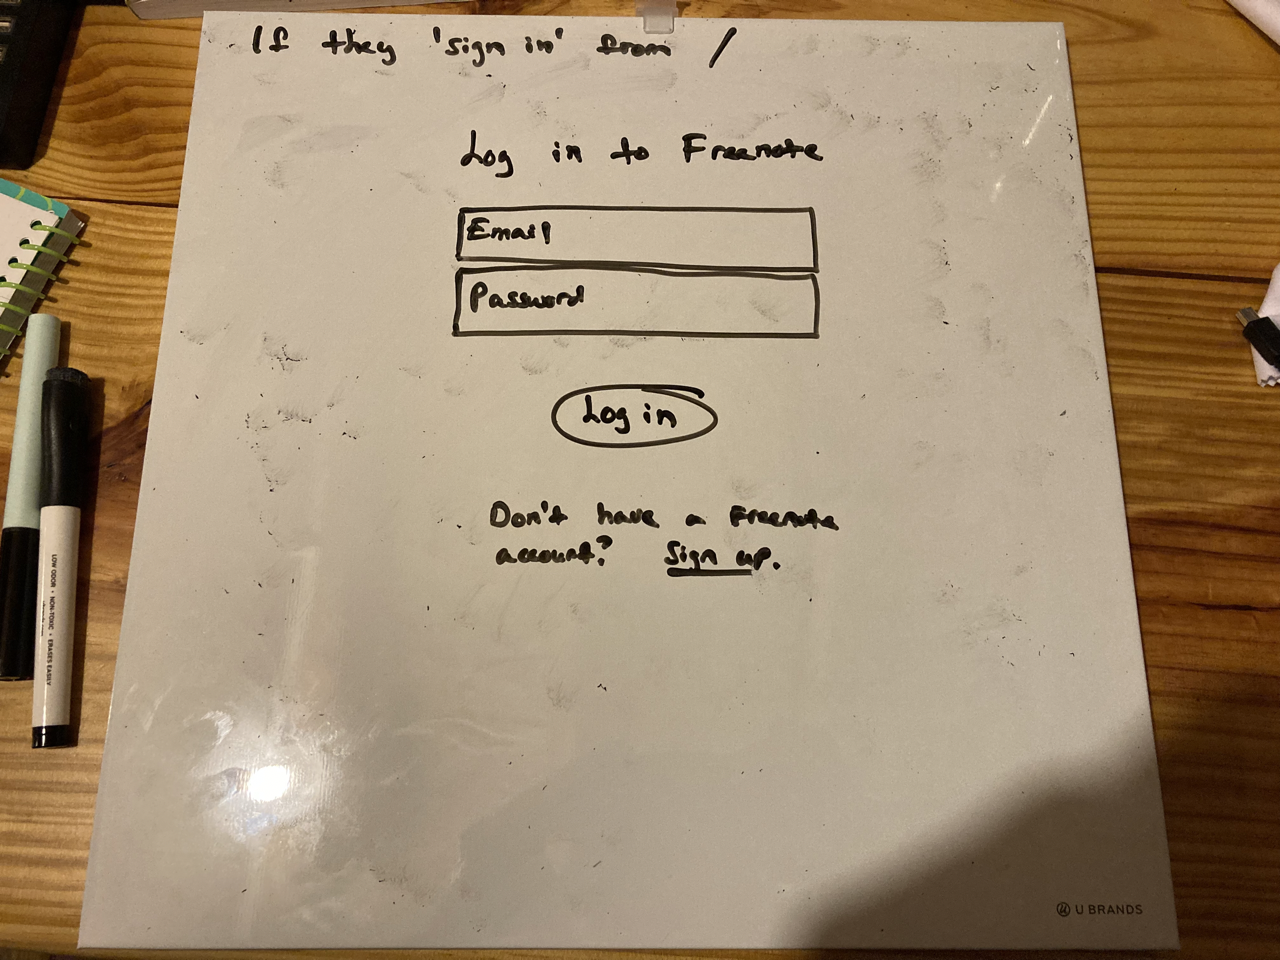 If they 'sign in' from /
Log in to Freenote
Email
Password
Log in
Don't have a Freenote
account? Sign up.
LOW ODOR • NON-TOXIC • ERASES EASILY
U BRANDS